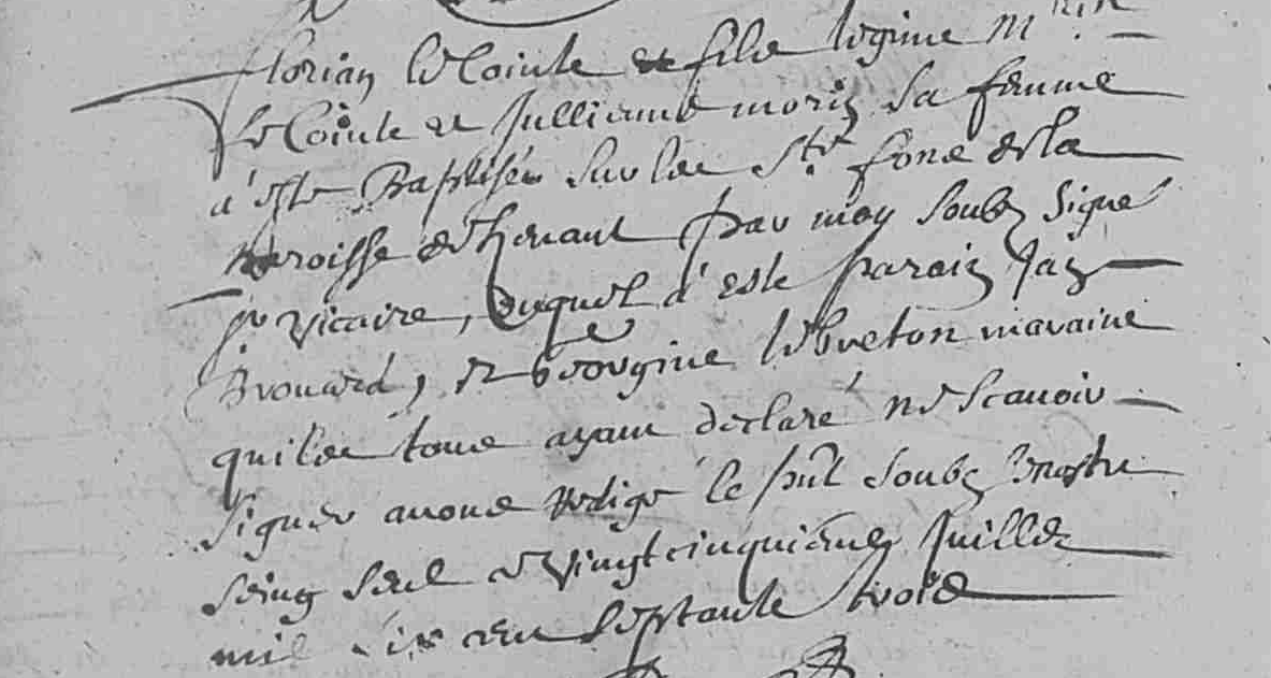 florian le Cointe et fils legime M
le Cointe et Jullienne morin sa femme
a este Baptisée sur les Sts fons de la
paroisse de par moy soubz signé
vicaire, duquel a este parain Jan
Brouard, et Georgine le breton maraine
qui les tous ayant declaré ne scauoir
signer auons redigé le pnt soubz nostre
seing seul ce vingt cinquieme Juillet
mil six cen septante trois